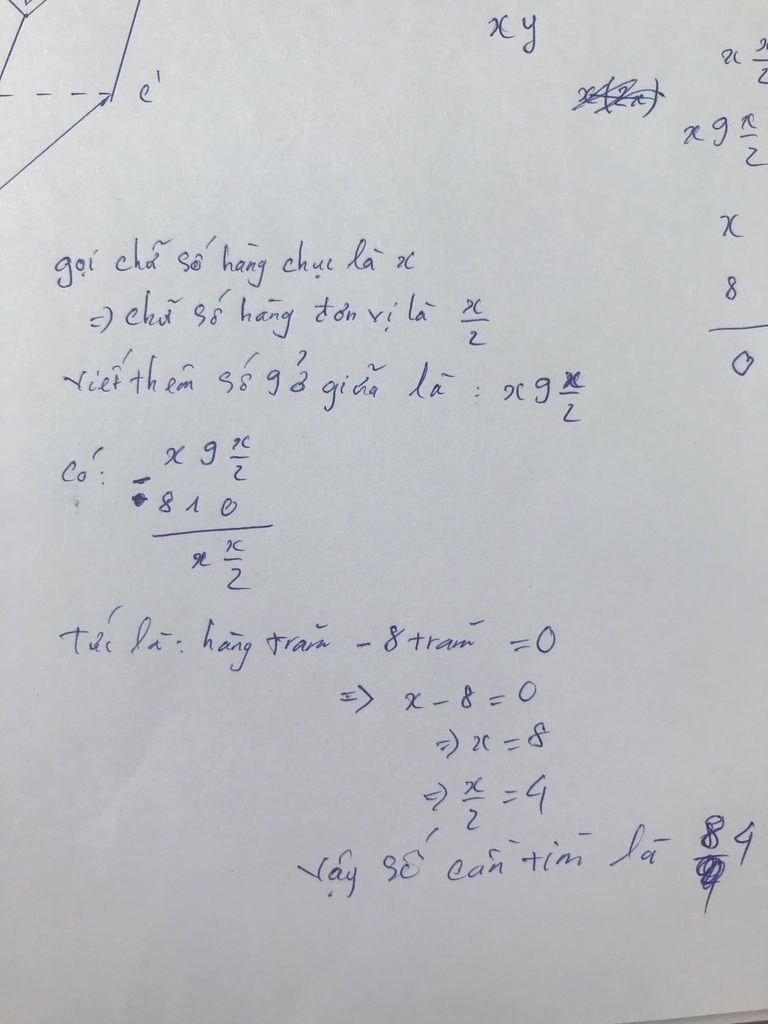 c'
x y
x x/2
x(2x)
x 9 x/2
x
8
0
gọi chữ số hàng chục là x
=> chữ số hàng đơn vị là x/2
viết thêm số 9 ở giữa là : x 9 x/2
Có:
x 9 x/2
- 8 1 0
x x/2
tức là: hàng trăm - 8 trăm = 0
=> x - 8 = 0
=> x = 8
=> x/2 = 4
Vậy số cần tìm là 84